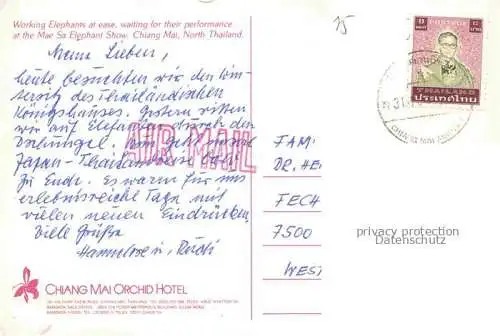 Working Elephants at ease, waiting for their performance
at the Mae Sa Elephant Show. Chiang Mai, North Thailand.
75
Meine Lieben,
heute besuchten wir den Win-
tersitz des Thailändischen
Königshauses. Gestern ritten
wir auf Elefanten durch den
Dschungel. Nun geht unsere
Japan-Thailandreise
zu Ende. Es waren für uns
erlebnisreiche Tage mit
vielen neuen Eindrücken.
Viele Grüße
Hannelore u. Rudi
AIR MAIL
THAILAND
ประเทศไทย
CHIANG MAI
FAM
DR. HE
FECH
7500
WEST
privacy protection
Datenschutz
CHIANG MAI ORCHID HOTEL